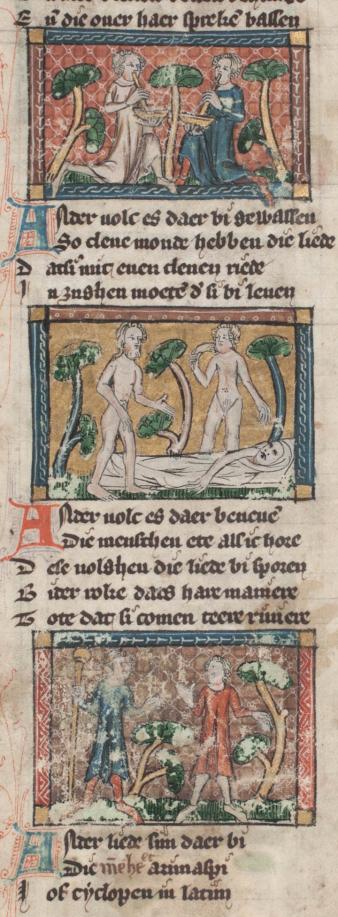 E n̄ die ouer haer sprekē bassen
Ander volc es daer bi gewassen
So clene monde hebben die liede
D atsi mit enen clenen riede
I n zughen moetē d si bi leuen
Ander volc es daer beneuē
Die menschen ete als ic hore
D ese volghen die liede bi sporen
B uter wilē daers hare maniere
T ote dat si comen teere riuiere
Ander liede sijn daer bi
Die mē het arimaspi
I of cyclopen in latin